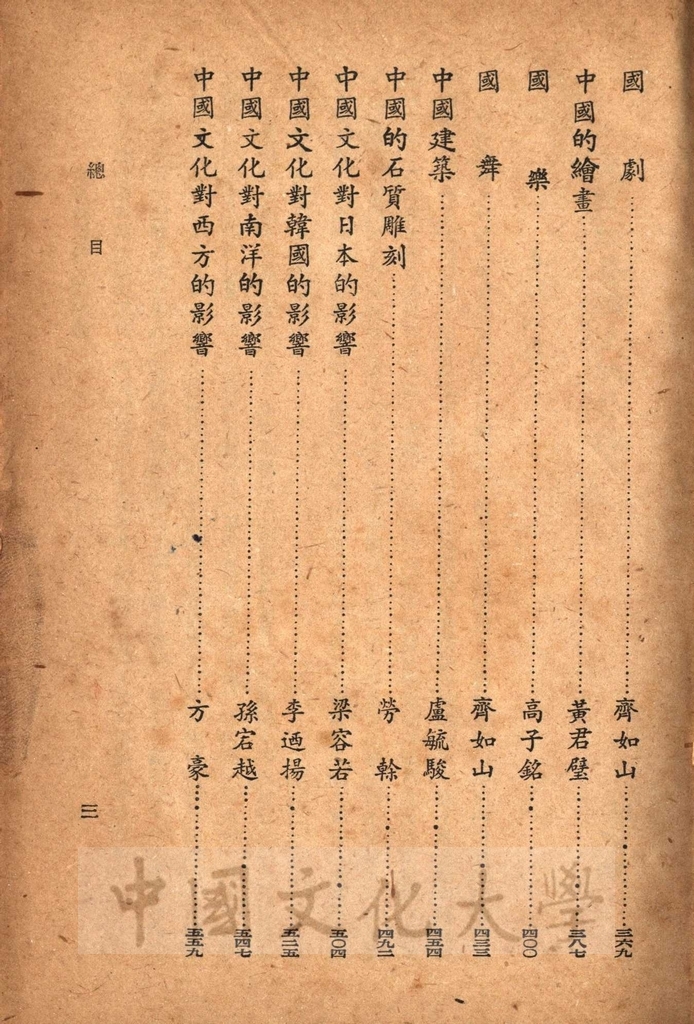 國劇⋯⋯齊如山⋯⋯三六九
中國的繪畫⋯⋯黃君璧⋯⋯三八七
國樂⋯⋯高子銘⋯⋯四〇〇
國舞⋯⋯齊如山⋯⋯四三三
中國建築⋯⋯盧毓駿⋯⋯四五四
中國的石質雕刻⋯⋯勞榦⋯⋯四九二
中國文化對日本的影響⋯⋯梁容若⋯⋯五〇四
中國文化對韓國的影響⋯⋯李迺揚⋯⋯五二五
中國文化對南洋的影響⋯⋯孫宕越⋯⋯五四七
中國文化對西方的影響⋯⋯方豪⋯⋯五五九
總目
三
中國文化大學